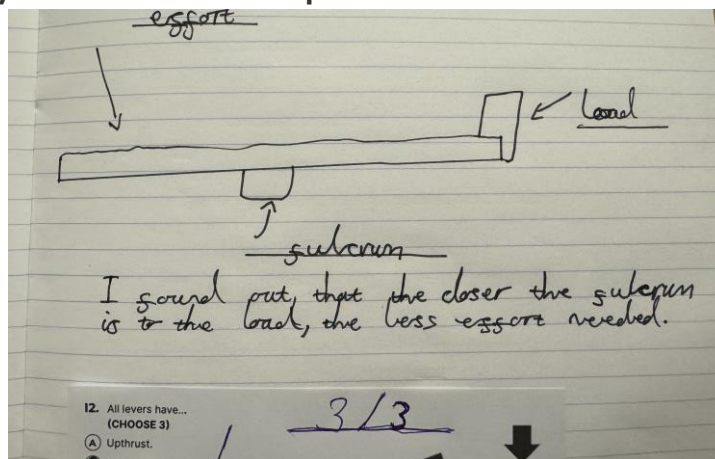 effort
load
fulcrum
I found out, that the closer the fulcrum
is to the load, the less effort needed.
12. All levers have...
(CHOOSE 3)
3/3
A Upthrust.